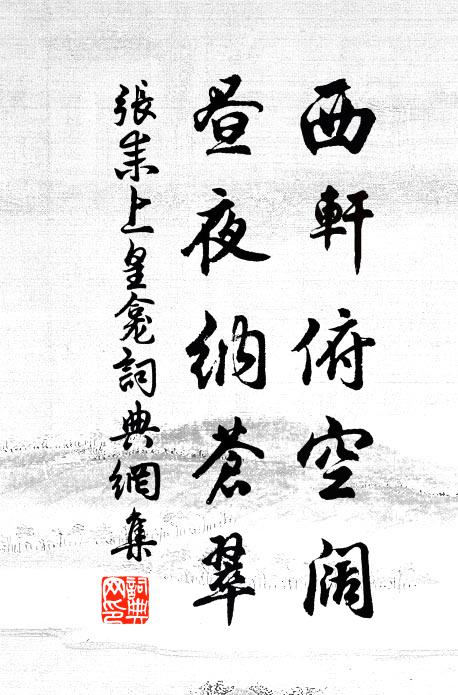 西軒俯空闊
晝夜納蒼翠
張耒上皇龕詞典網集
詞典網印